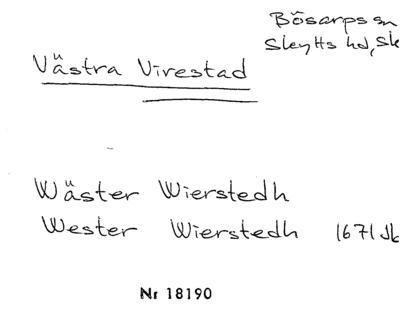 Bösarps sn
Skytts hd, Sk
Västra Virestad
Wäster Wierstedh
Wester Wierstedh 1671 Jb
Nr 18190